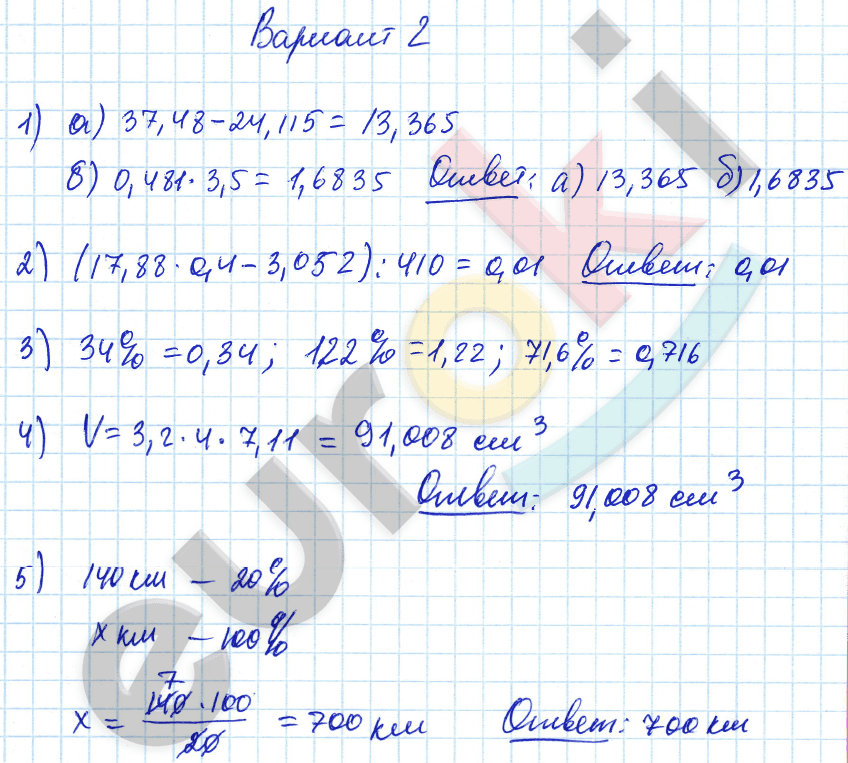 Вариант 2
1) а) 37,48-24,115 = 13,365
б) 0,481·3,5 = 1,6835 Ответ: а) 13,365 б) 1,6835
2) (17,88·0,4-3,052):410 = 0,01 Ответ: 0,01
3) 34% = 0,34; 122% = 1,22; 71,6% = 0,716
4) V = 3,2·4·7,11 = 91,008 см³
Ответ: 91,008 см³
5) 140 км — 20%
х км — 100%
7
х = 140·100 / 20 = 700 км Ответ: 700 км
euroki